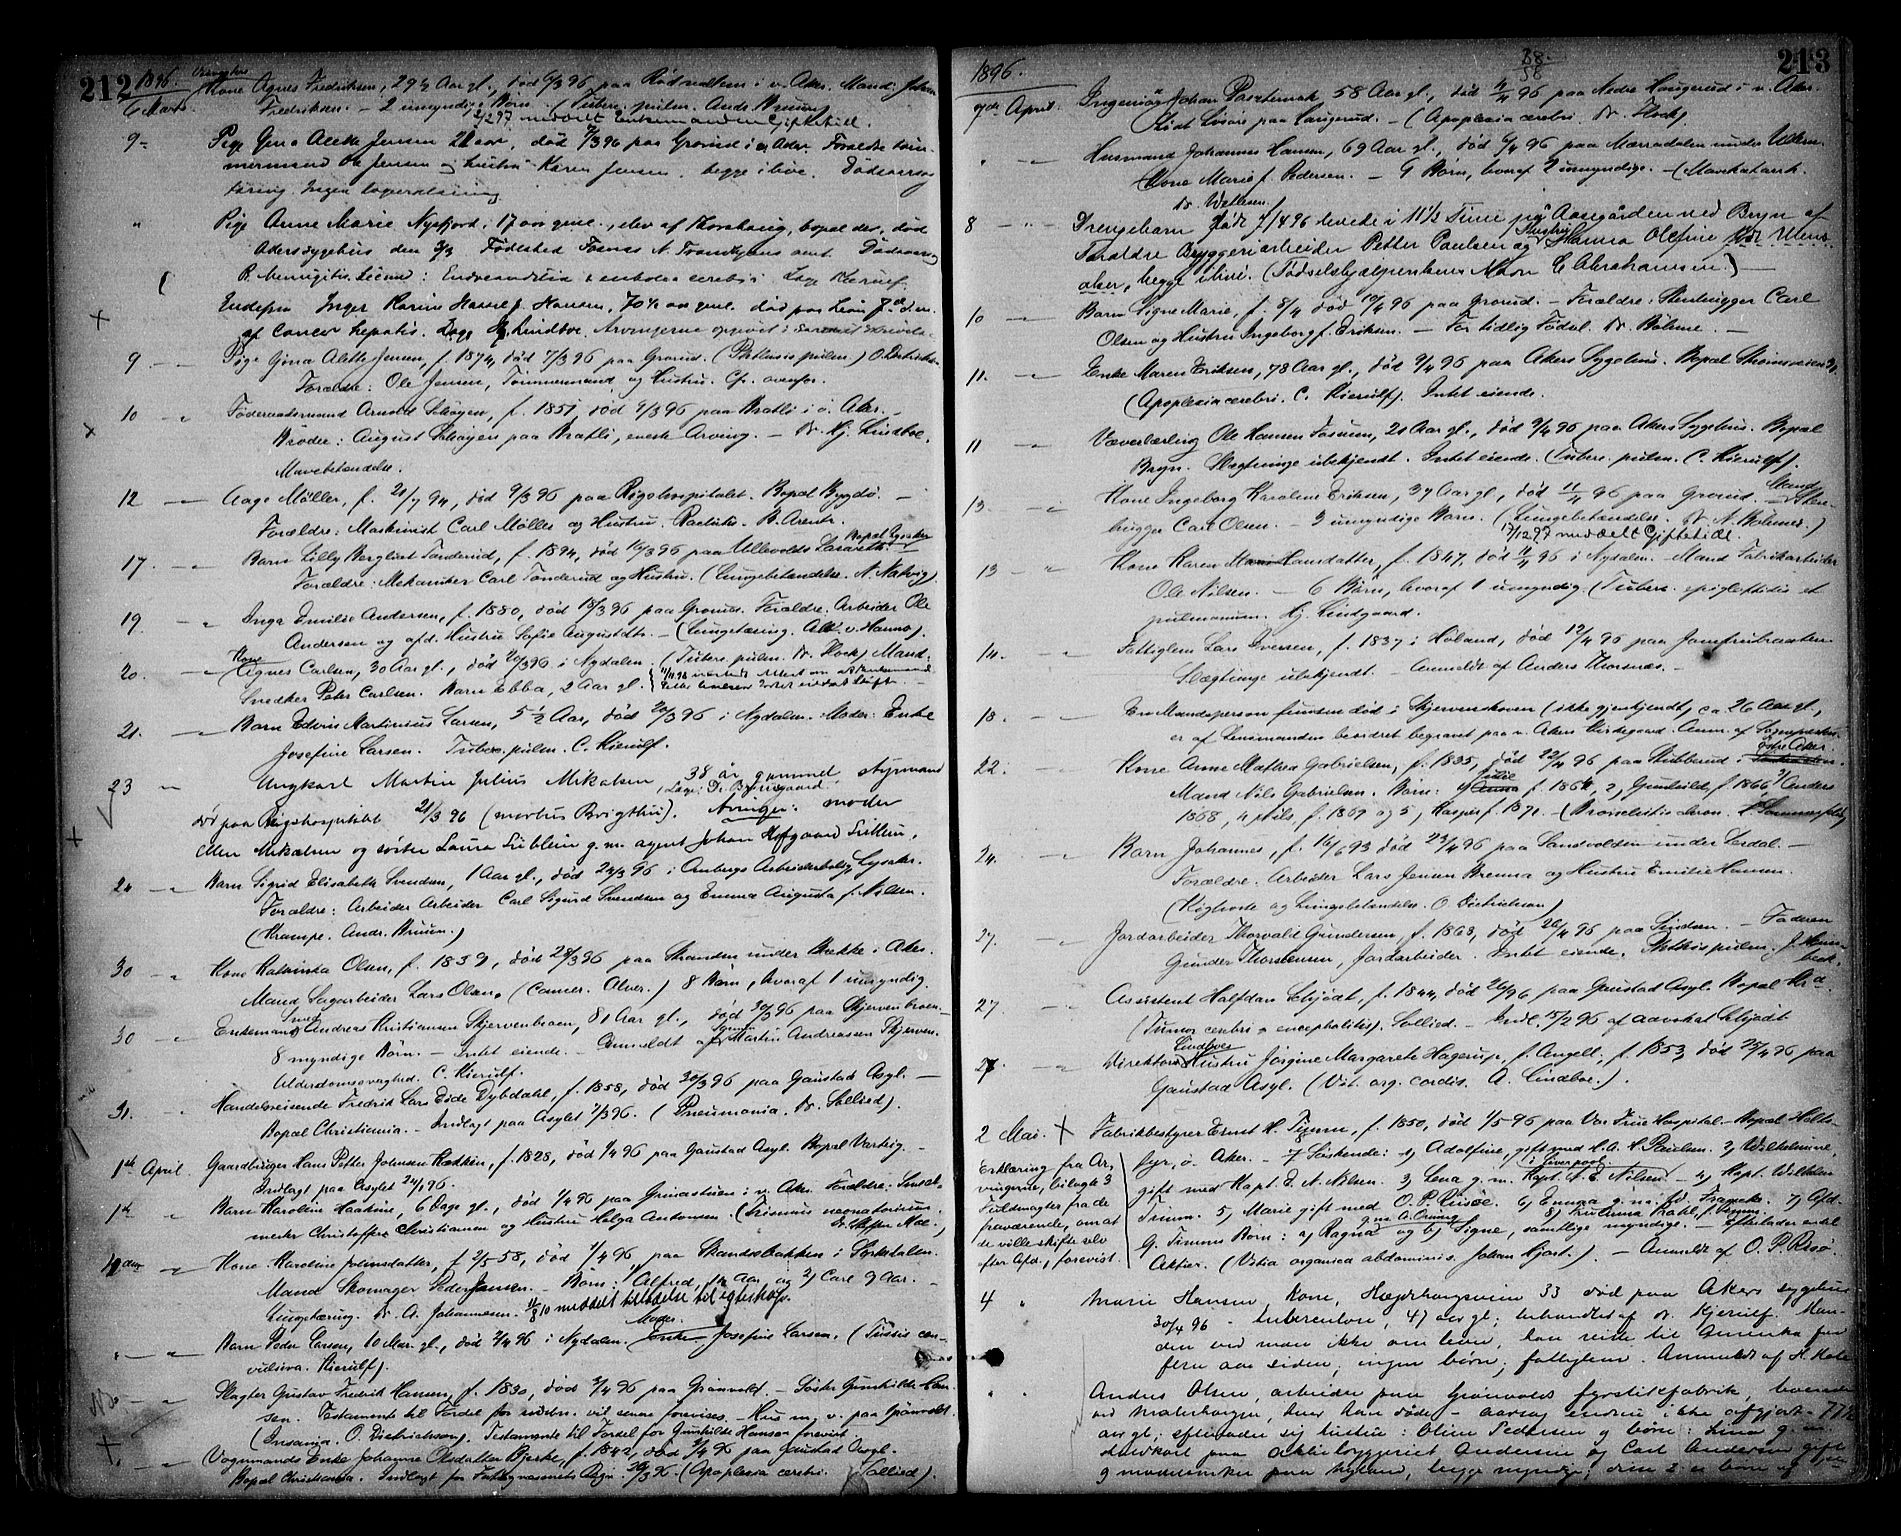 212
1896.
6 Marts Kone Agnes Fredriksen, 29½ Aar gl., død 6/3 96 paa Rødsvolden i v. Aker. Mand: Johan
Fredriksen. - 2 umyndige Børn. (Tuberc. pulm. Andr. Bruun)
meddelt Enkemanden Giftetill.
9 - Pige Gina Alette Jensen 21 aar, død 7/3 96 paa Grorud i ø. Aker. Foreldre tøm-
mermand Ole Jensen og hustru Karen Jensen, begge i live. Dødsaarsag
tæring. Ingen lageratning
" Pige Anne Marie Nyfjord, 17 aar gmel., elev af Toreshaug, bopæl der, død
Akers sygehus den 3/3 Fødested N. Trondhjems amt. Dødsaarsag
Endvidere embolia cerebri. Læge Kierulf.
Enkefru Inger Karine Hassel f. Hansen, 70½ aar gmel. død paa
af Cancer hepatis. Læge Hj. Lindboe. Arvingerne
9 - " Pige Gina Alette Jensen, f. 1874, død 7/3 96 paa Grorud. (Phthisis pulm.) O. Dietrichson
Forældre: Ole Jensen, Tømmermand og Hustru. Cfr. ovenfor.
10 " Føderaadsmand Arnold Schøyen, f. 1851, død 9/3 96 paa Bratli i ø. Aker. -
Broder: August Schøyen paa Bratli, eneste Arving. - Dr. Hj. Lindboe.
Mavebetændelse.
12 - Aage Møller, f. 21/7 94, død 9/3 96 paa Rigshospitalet. Bopæl Bygdø. -
Forældre: Maskinist Carl Møller og Hustru. Rachitis. B. Arentz.
17. - " Barn Lilly Bergliot Tanderud, f. 1894, død 16/3 96 paa Ullevolds Lasareth. Bopæl Lysaker
Forældre: Mekaniker Carl Tanderud og Hustru. (Lungebetændelse. N. Natvig).
19. " Inga Emilie Andersen, f. 1880, død 18/3 96 paa Grorud. Foreldre. Arbeider Ole
Andersen og afd. Hustru Sofie Augustdtr. - (Lungetæring. Alb. v. Hanno).
20. - " Kone Agnes Carlsen, 30 Aar gl., død 20/3 96 i Nydalen. (Tuberc. pulm. Dr. Flock) Mand:
Snedker Peter Carlsen. Barn Ebba, 2 Aar gl.
21. - " Barn Edvin Martinius Larsen, 5½ Aar, død 20/3 96 i Nydalen. Moder: Enke
Josefine Larsen. Tuberc. pulm. C. Kierulf.
23 " Ungkarl Martin Julius Mikalsen, 38 år gammel, styrmand
død paa Rigshospitalet 21/3 96 (morbus Brigthii). Arvinger: moder
Ellen Mikalsen og søster Laura Lieblein g. m. agent Johan Hofgaard Lieblein.
24 - " Barn Sigrid Elisabeth Svendsen, 1 Aar gl., død 24/3 96 i Ambergs Arbeiderbolig Lysaker
Forældre: Arbeider Arbeider Carl Sigurd Svendsen og Emma Augusta f. Nilsen.
(Krampe. Andr. Bruun.)
30 - " Kone Kathinka Olsen, f. 1839, død 28/3 96 paa Stranden under Bække i Aker.
Mand Sagarbeider Lars Olsen. (Cancer. Alver.) 8 Børn, hvoraf 1 umyndig.
30 - " Enkemand Smed Andreas Kristiansen Skjervenbraaten, 81 Aar gl., død 30/3 96 paa Skjervenbraaten.
8 myndige Børn. - Intet eiende. - Anmeldt af Sønnen Martin Andreassen Skjerven.
Alderdomssvaghed. C. Kierulf.
31. Handelsreisende Fredrik Lars Eide Dybdahl, f. 1858, død 30/3 96 paa Gaustad Asyl. -
Bopæl Christiania. - Indlagt paa Asylet 1/3 96. (Pneumonia. Dr. Sollied).
1ste April. Gaardbruger Hans Petter Johnsen Hækken, f. 1828, død 1/4 96 paa Gaustad Asyl. Bopæl Varteig. -
Indlagt paa Asylet 24/1 96.
1ste " Barn Karoline Haakine, 6 Dage gl., død 1/4 96 paa Grimastuen i v. Aker. Forældre: Snedker-
mester Christoffer Christiansen og Hustru Helga Antonsen. (Trismus neonatorum. Dr. Steffen Moe.)
4de " Kone Karoline Johnsdatter, f. 2/5-58, død 1/4 96 paa Skandsebakken i Sørkedalen.
Mand Skomager Peder Jansen. - Børn: 1) Alfred, 12 Aar og 2) Carl 9 Aar. -
Lungetæring. Dr. A. Johannesen. meddelt tilladelse til egteskap.
" - " Barn Peder Larsen, 10 Mdr. gl., død 3/4 96 i Nydalen. Moder. Enke Josefine Larsen. (Tussis con-
vulsiva. Kierulf).
Slagter Gustav Fredrik Hansen, f. 1830, død 3/4 96 paa Grønvold. - Søster Gunhilde Han-
sen. Testamente til Fordel for vil senere forevises. - Hus m. v. paa Grønvold.
(Insania. O. Dietrichson). Testamente til Fordel for Gunhilde Hansen forevist.
Vognmands Enke Johanne Olsdatter Bjerke, f. 1842, død 3/4 96 paa Gaustad Asyl.
Bopæl Christiania. Indlagt for Fattigvæsenets Regn. 30/3 96. (Apoplexia cerebri. Sollied).
213
1896.
7de April. Ingeniør Johan Paszternak 58 Aar gl., død 4/4 96 paa Nedre Haugerud i v. Aker.
(Apoplexia cerebri. Dr. Flock)
" - " Husmand Johannes Hansen, 69 Aar gl., død 6/4 96 paa Mærradalen under Ullern.
Kone Marie f. Pedersen. - 9 Børn, hvoraf 2 umyndige. - (Mavekatarrh.
Dr. Wetlesen.)
8 - " Drengebarn født 7/4 96 levede i 11½ Time på Aasegården ved Bryn af
Foraldre Bryggeriarbeider Petter Paulsen og Hustru Hanna Olefine født Ulens-
aker, begge i live. (Fødselshjælperinden Maren E. Abrahamsen.) -
10 - " Barn Signe Marie, f. 8/4 død 10/4 96 paa Grorud. - Forældre: Stenhugger Carl
Olsen og Hustru Ingeborg f. Eriksen. - For tidlig Fødsel. Dr. Bøhmer. -
11. - " Enke Maren Eriksen, 78 Aar gl., død 9/4 96 paa Akers Sygehus. Bopæl Strømsveien
(Apoplexia cerebri. C. Kierulf). Intet eiende.
11 - " Væverlærling Ole Hansen Fossum, 20 Aar gl., død 9/4 96 paa Akers Sygehus. Bopæl
Bryn. Slægtninge ubekjendt. Intet eiende. (Tuberc. pulm. C. Kierulf).
13. - " Kone Ingeborg Karoline Eriksen, 37 Aar gl., død 11/4 96 paa Grorud. Mand Sten-
hugger Carl Olsen. - 3 umyndige Børn. (Lungebetændelse. Dr. N. Bøhmer.)
17/12 97 meddelt Giftetill.
13 - " Kone Karen Marie Hansdatter, f. 1847, død 11/4 96 i Nydalen. - Mand Fabrikarbeider
Ole Nilsen. - 6 Børn, hvoraf 1 umyndig. (Tuberc. epiglottidis et
pulmonum. Hj. Lindgaard.
14. - " Fattiglem Lars Iversen, f. 1837 i Høland, død 12/4 96 paa Jomfrubraaten.
Slægtninge ubekjendt. - Anmeldt af Anders Thorsnæs. -
18. - " En Mandsperson funden død i Skjervenskoven (ikke gjenkjendt), ca. 26 Aar gl.,
er af Lensmanden beordret begravet paa v. Akers Kirkegaard. Anm. af Sognepresten
Østre Aker.
22. - " Kone Anne Mathea Gabrielsen, f. 1835, død 22/4 96 paa Stubberud i
Mand Nils Gabrielsen. Børn: 1) f. 1864, 2, Gunhild f. 1866, 3) Anders
1868, 4, Nils, f. 1869 og 5, Kasper f. 1871. - (Bronchitis chron. Sommerfeldt)
24. - " Barn Johannes, f. 16/6 93 død 23/4 96 paa Sandvolden under Lerdal. -
Forældre. Arbeider Lars Jensen Brenna og Hustru Emilie Hansen.
(Kighoste og Lungebetændelse. O. Dietrichson)
27. - " Jordarbeider Thorvald Gundersen, f. 1863, død 26/4 96 paa Sinsen. - Faderen
Gunder Thorstensen, Jordarbeider. Intet eiende. Phthisis pulm. J. Heim-
beck.
27 - " Assistent Halfdan Schjødt, f. 1844, død 26/4 96 paa Gaustad Asyl. Bopæl Kr.a.
(Tumor cerebri & encephalitis). Sollied. - Indl. 15/2 96 af Advokat Schjødt
27 - " Direktør Lindboes Hustru Jørgine Margarete Hagerup, f. Angell, f. 1853, død 25/4 96 paa
Gaustad Asyl. (Vit. org. cordis. A. Lindboe.).
2 Mai. + Fabrikbestyrer Ernst H. Timme, f. 1850, død 1/5 96 paa Vor Frue Hospital. Bopæl Holts-
fyr, ø. Aker. - 7 Søskende: 1) Adolfine, gift med H. A. H. Paulsen. 2) Wilhelmine,
gift med Kapt. E. N. Nilsen. 3, Lena g. m. Kapt. N. E. Nilsen i Liverpool - 4) Kapt. Wilhelm
Timm. 5) Marie gift med O. P. Risøe. 6) Emma g. m. 7) Afd.
G. Timms Børn: a) Ragna og b) Signe, samtlige myndige. - Efterlader endel
Aktier. (Vitia organica abdominis. Johan Hjort.) - Anmeldt af O. P. Risø.
Erklæring fra Ar-
vingerne, bilagt 3
Fuldmagter fra de
fraværende, om at
de ville skifte selv
efter Afd., forevist.
4 " Marie Hansen, kone, Hegdehaugsveien 33 død paa Akers sygehus
30/4 96 - tuberculose, 47 aar gl; behandlet af dr. Kjerulf. Man-
den ved man ikke om lever, han reiste til Amerika for
flere aar siden; ingen børn; fattiglem. Anmeldt af H. Hals
" Anders Olsen, arbeider paa Grønvolds fyrstikfabrik, boende
ved Malerhaugen, hvor han døde - aarsag endnu ikke afgjort - 77½
aar gl; efterlader sig hustru: Oline Pedersen og børn: Lina g. m.
paa aktiebryggeriet Andersen og Carl Andersen gift
og maskinist paa Nyland, begge myndige; disse 2 er børn